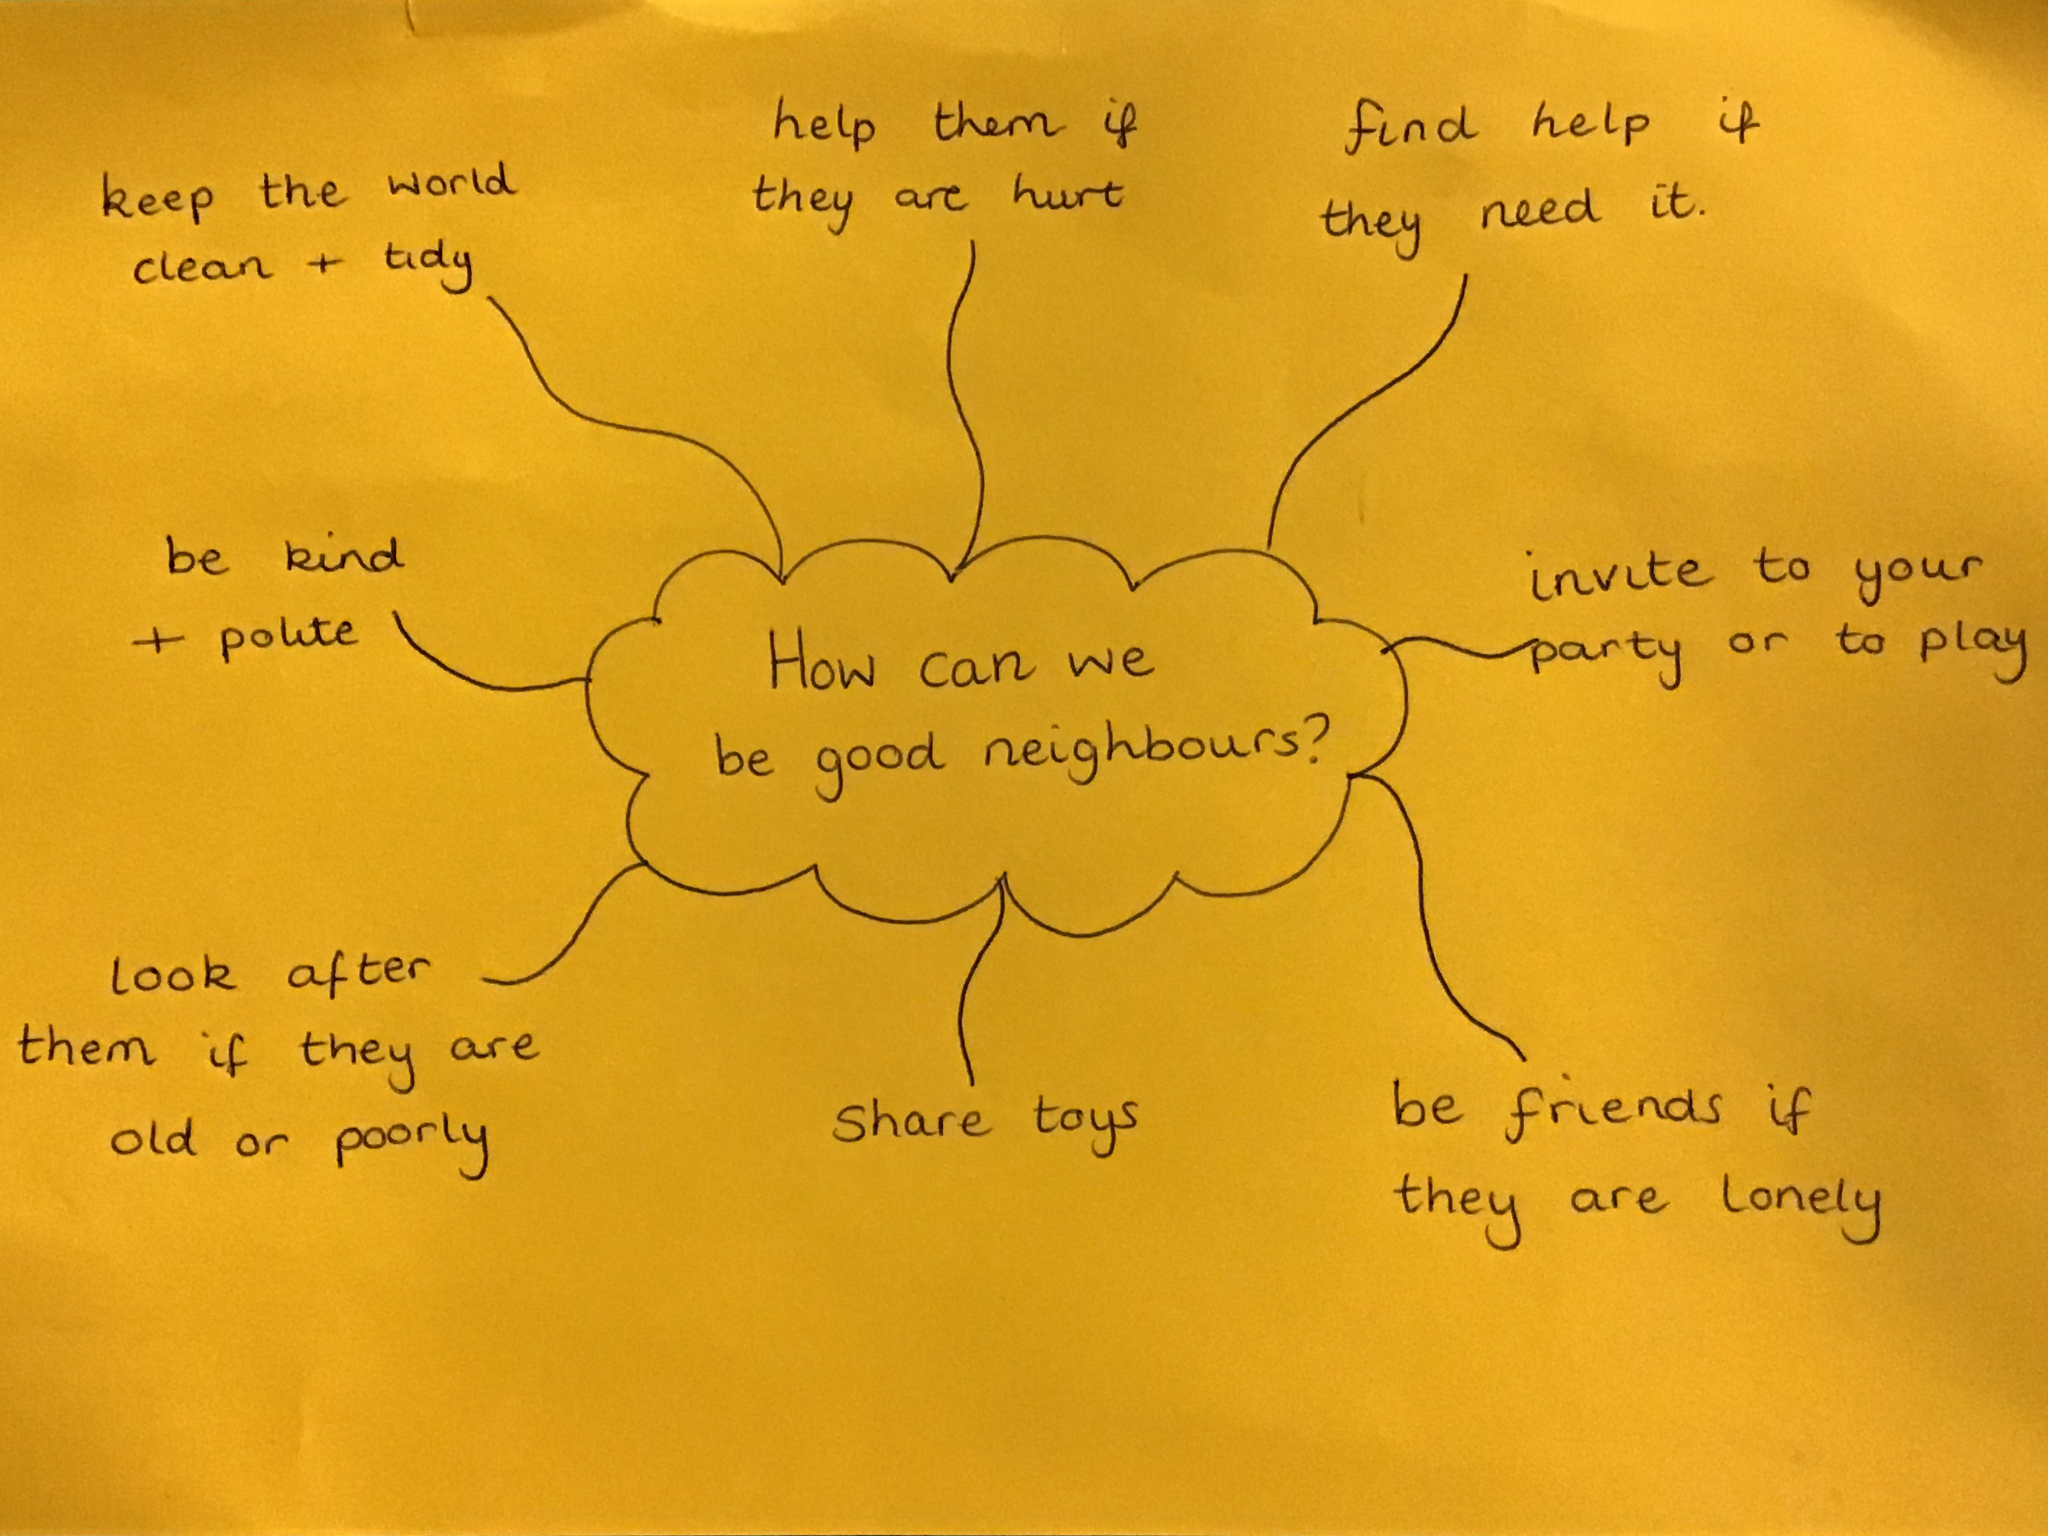 keep the world
clean + tidy
help them if
they are hurt
find help if
they need it.
be kind
+ polite
How can we
be good neighbours?
invite to your
party or to play
look after
them if they are
old or poorly
Share toys
be friends if
they are lonely